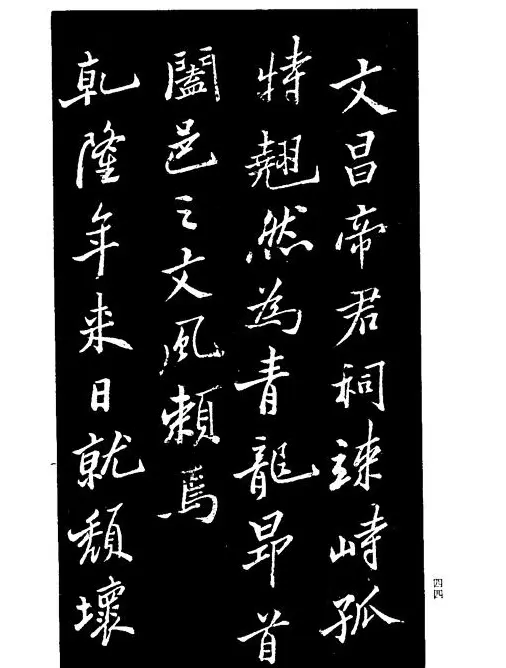 文昌帝君祠竦峙孤
特翹然為青龍昂首
闔邑之文風賴焉
乾隆年来日就頹壞
四四